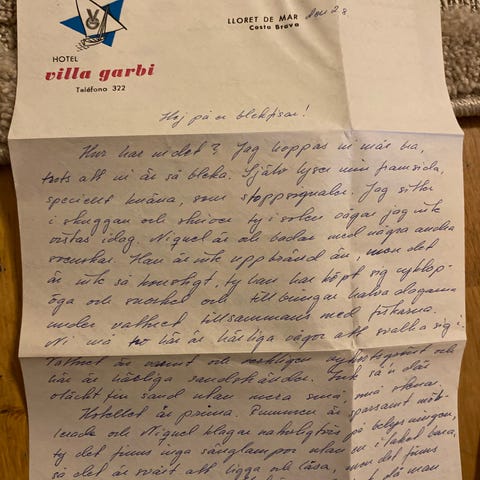 HOTEL
villa garbi
Teléfono 322
LLORET DE MAR den 28
Costa Brava
Hej på er blekfisar!
Hur har ni det? Jag hoppas ni mår bra,
trots att ni är så bleka. Själv lyser min framsida,
speciellt knäna, som stoppsignaler. Jag sitter
i skuggan och skriver ty i solen vågar jag inte
vistas idag. Miguel är och badar med några andra
svenskar. Han är inte uppbränd än, men det
är inte så konstigt, ty han har köpt sig cyklop-
öga och snorkel och tillbringar halva dagarna
under vattnet tillsammans med fiskarna.
Ni må tro här är härliga vågor att svalka sig i.
Vattnet är varmt och verkligen och
här är härliga sandstränder. Inte sån där
otäckt fin sand utan mera små, små stenar.
Hotellet är prima. Rummen är sparsamt möb-
lerade och Miguel klagar naturligtvis på belysningen,
ty det finns inga sänglampor utan en i taket bara,
så det är svårt att ligga och läsa, men det finns
då man